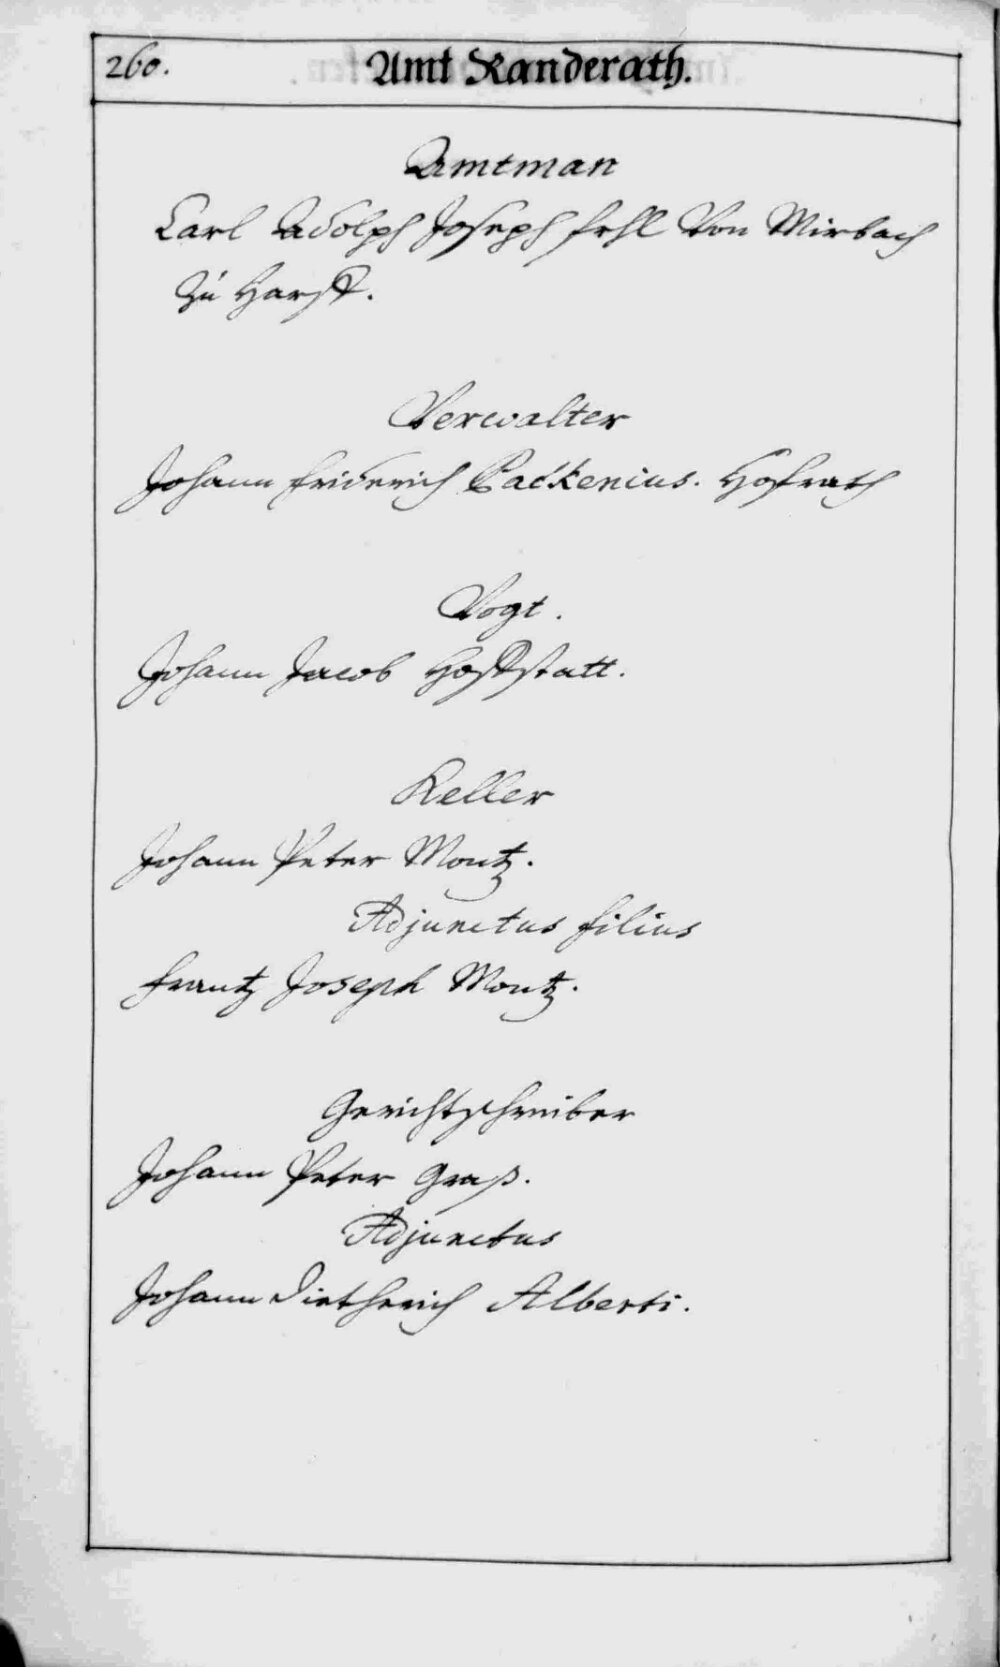 260.
Amt Randerath.
Amtman
Carl Adolph Joseph frhl Von Mirbach
Zú Harff.
Verwalter
Johann friderich Packenius. Hofrath
Vogt.
Johann Jacob Hoffstatt.
Keller
Johann Peter Montz.
Adjunctus filius
frantz Joseph Montz.
Gerichtschreiber
Johann Peter Graß.
Adjunctus
Johann Dietherich Alberti.